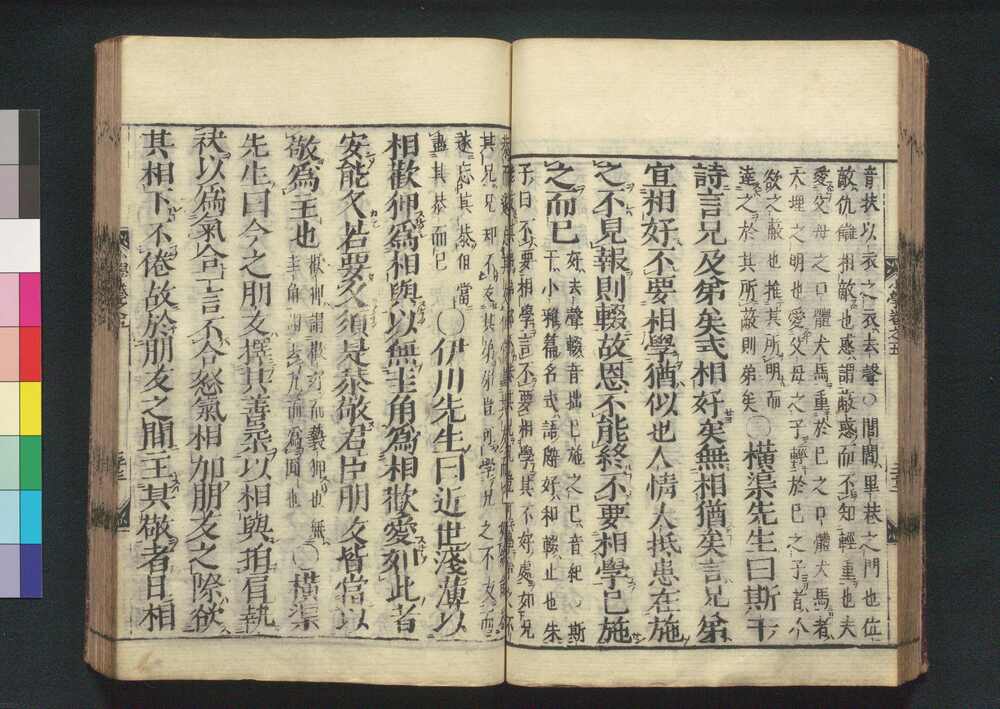 音扶以衣之衣去聲○閭閻里巷之門也佐
敵仇讎相敵也惑謂蔽惑而不知輕重也夫
愛父母之口體犬馬重於己之口體犬馬者
大理之明也愛父母之子輕於己之子者人
欲之蔽也推其所明而
達之於其所蔽則弟矣
○橫渠先生曰斯干
詩言兄及弟矣式相好矣無相猶矣言兄弟
宜相好不要相學猶似也人情大抵患在施
之不見報則輟故恩不能終不要相學己施
之而已
好去聲輟音拙已施之已音紀○斯
干小雅篇名式語辭好和輟止也朱
子曰不要相學言不要相學其不好處如兄
其兄兄却不友其弟弟豈可學兄之不友而
遂忘其恭但當
盡其恭而已
○伊川先生曰近世淺薄以
相歡狎爲相與以無圭角爲相歡愛如此者
安能久若要久須是恭敬君臣朋友皆當以
敬爲主也
歡狎謂歡好而褻狎也無
圭角謂去方而爲圓也
○橫渠
先生曰今之朋友擇其善柔以相與拍肩執
袂以爲氣合一言不合怒氣相加朋友之際欲
其相下不倦故於朋友之間主其敬者日相
小學卷之五